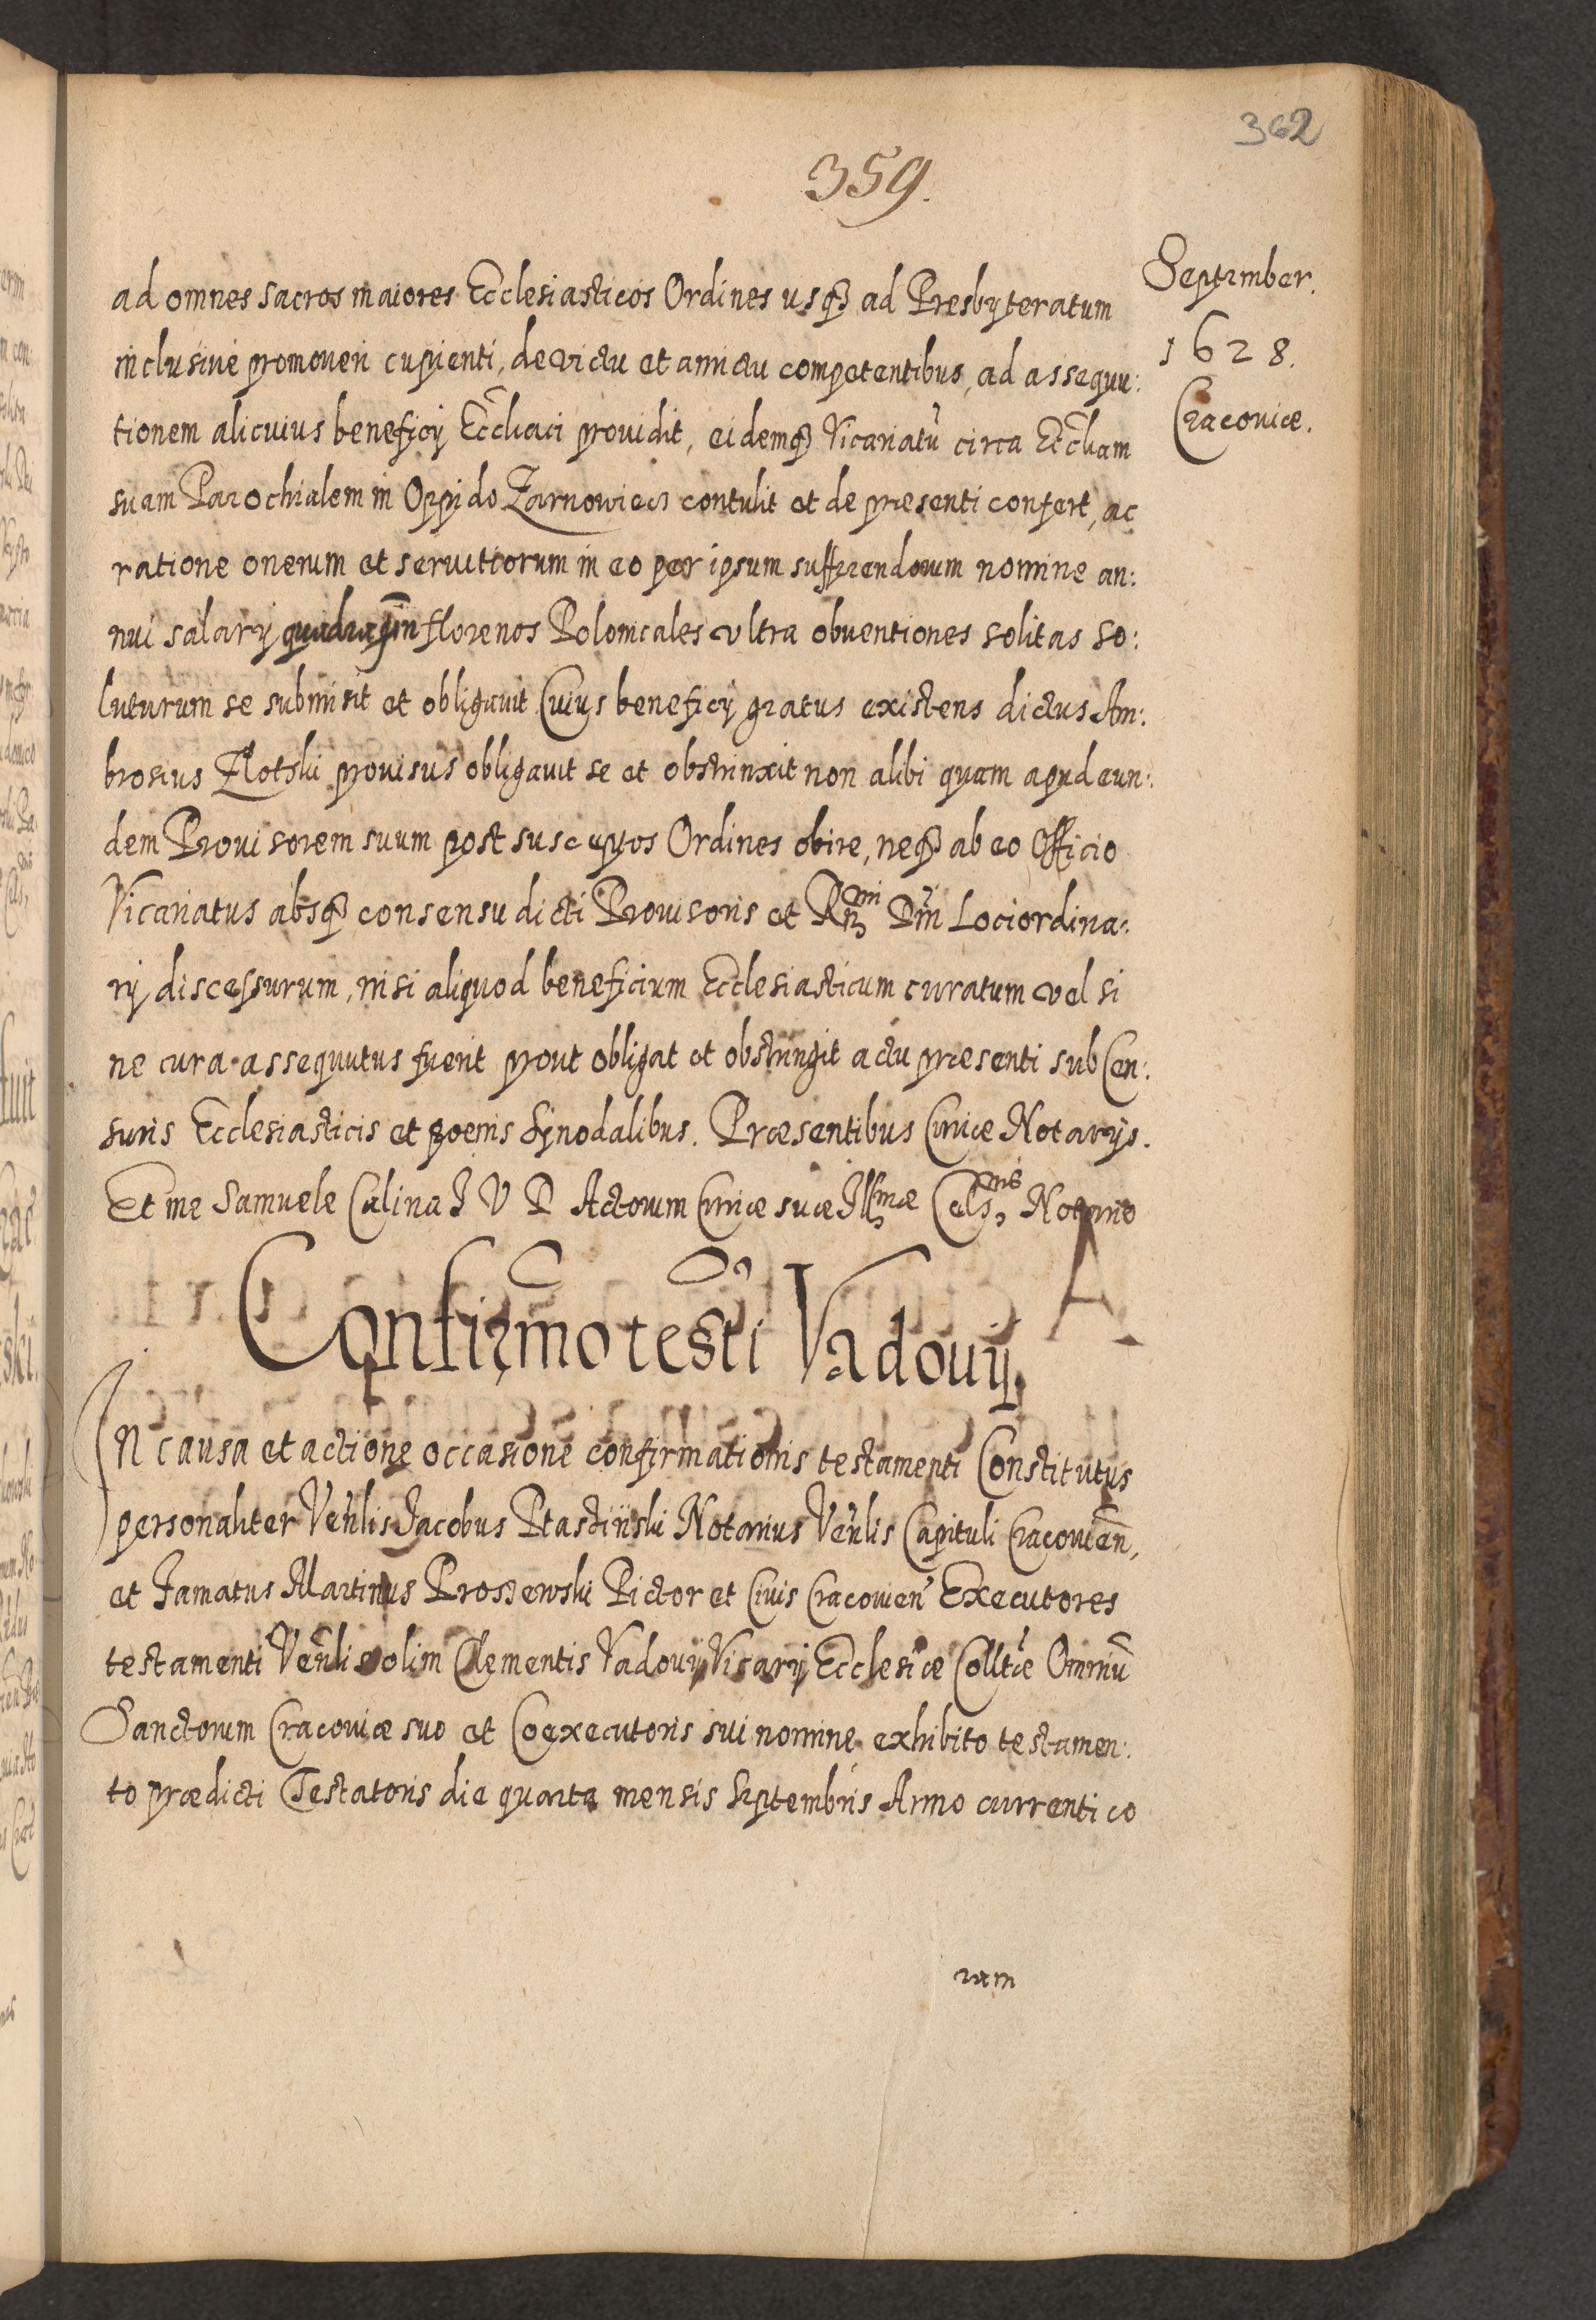 362
359.
September.
1628.
Cracoviæ.
ad omnes sacros maiores Ecclesiasticos Ordines usq₃ ad Presbyteratum
inclusive promoveri cupienti, de victu et amictu competentibus, ad assequu:
tionem alicuius beneficij Ecclīaci providit, eidemq₃ Vicariatū circa Ecclīam
suam Parochialem in Oppido Zarnowiecz contulit et de præsenti confert, ac
ratione onerum et servitiorum in eo per ipsum sufferendorum nomine an:
nui salarij quadragīn florenos Polonicales ultra obventiones solitas so:
luturum se submisit et obligavit Cuius beneficij gratus existens dictus Am:
brosius Zlotski provisus obligavit se et obstrinxit non alibi quam apud eun:
dem Provisorem suum post susceptos Ordines obire, neq₃ ab eo Officio
Vicariatus absq₃ consensu dicti Provisoris et Rn₃mi Dni Lociordina:
rij discessurum, nisi aliquod beneficium Ecclesiasticum curatum vel si
ne cura assequutus fuerit prout obligat et obstringit actu præsenti sub Cen:
suris Ecclesiasticis et poenis synodalibus. Præsentibus Curiæ Notarijs.
Et me Samuele Calina I V D Actorum Curiæ suæ Illmæ Cels,nis Notario
Confirmo testi Vadovij.
In causa et actione occasione confirmationis testamenti Constitutus
personaliter Venlis Jacobus Ptastinski Notarius Venlis Capituli Cracovien,
et Famatus Martinus Proszewski Pictor et Civis Cracovien Executores
testamenti Venlis olim Clementis Vadovij Vicarij Ecclesiæ Colltæ Omniū
Sanctorum Cracoviæ suo et Coexecutoris sui nomine exhibito testamen:
to prædicti Testatoris die quarta mensis Septembris Anno currenti co
ram